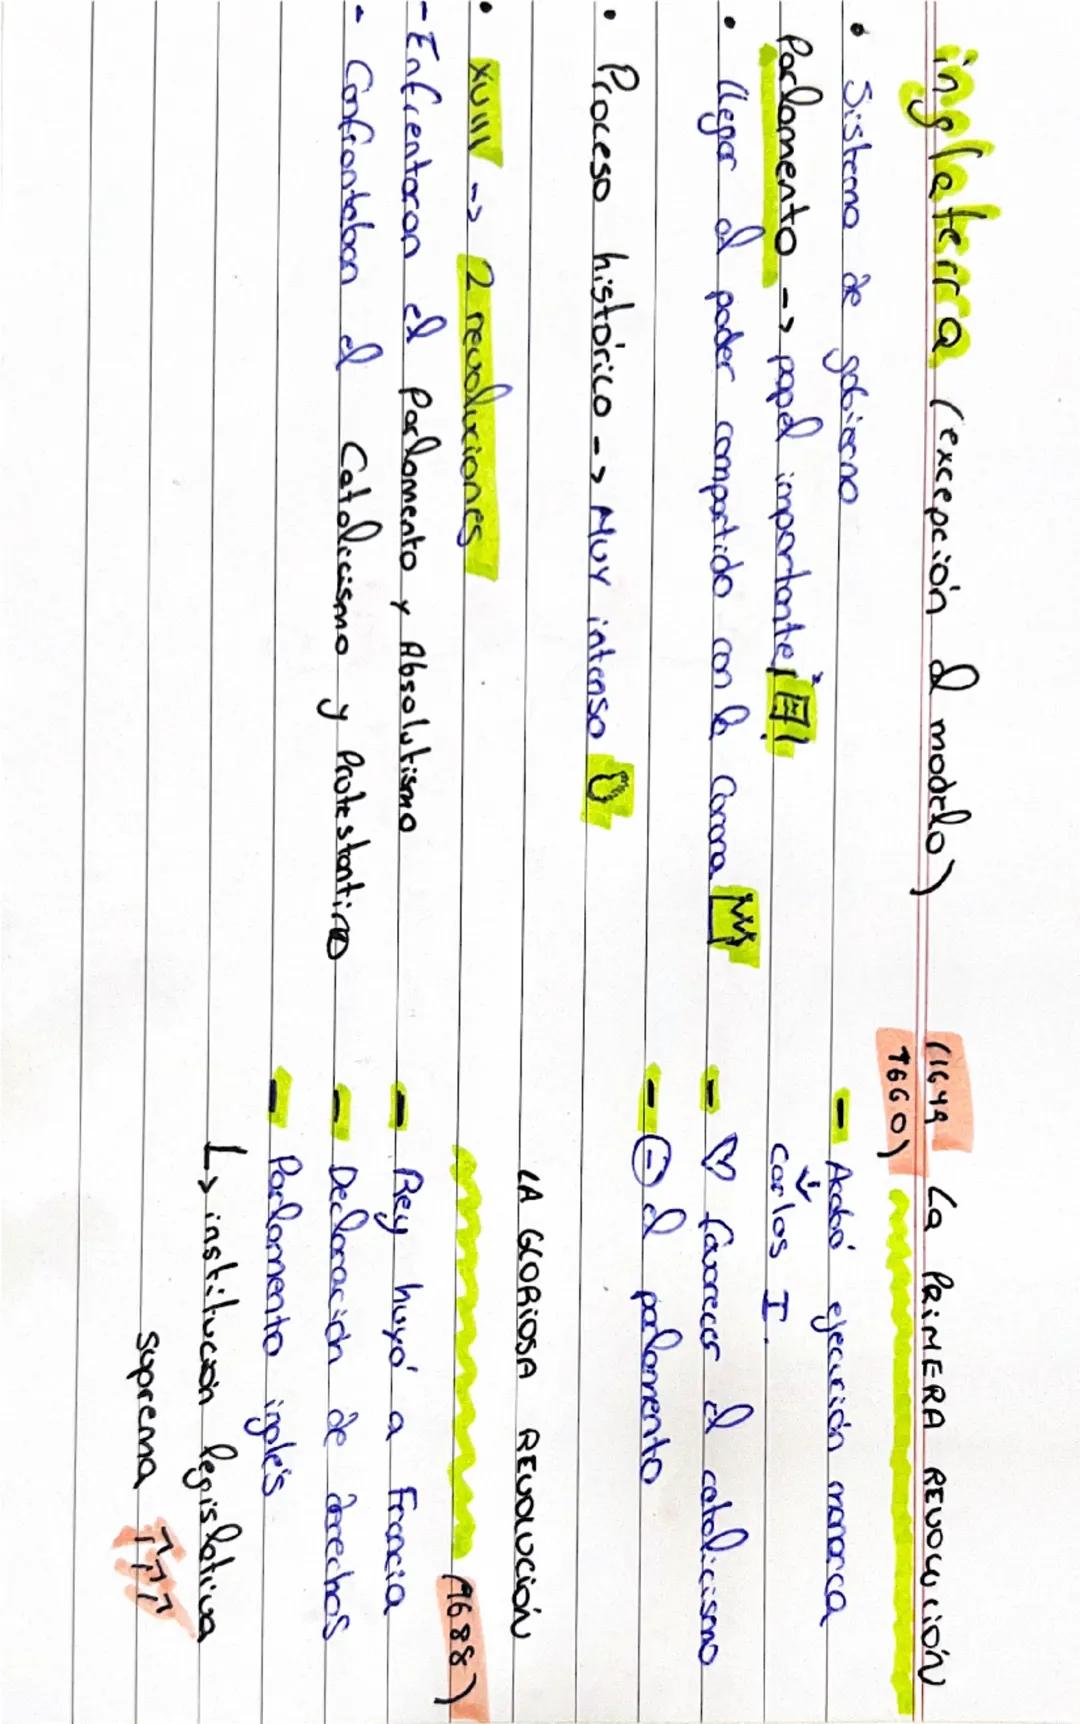 inglaterra (excepción al modelo)
• Sistema de gobierno
Parlamento -> papel importante
• llegar al poder compartido con la Corona
• Proceso histórico -> Muy intenso
• XVIII -> 2 revoluciones
- Enfrentaron el Parlamento y Absolutismo
- Confrontaban el Catolicismo y Protestantismo
(1649
1660) La PRIMERA REVOLUCIÓN
- Acabó ejecución monarca
Carlos I.
- ♡ favorecer el catolicismo
- ⊖ el parlamento
LA GLORIOSA REVOLUCIÓN
(1688)
- Rey huyó a Francia
- Declaración de derechos
- Parlamento inglés
↳ institución legislativa
suprema ↑↑↑